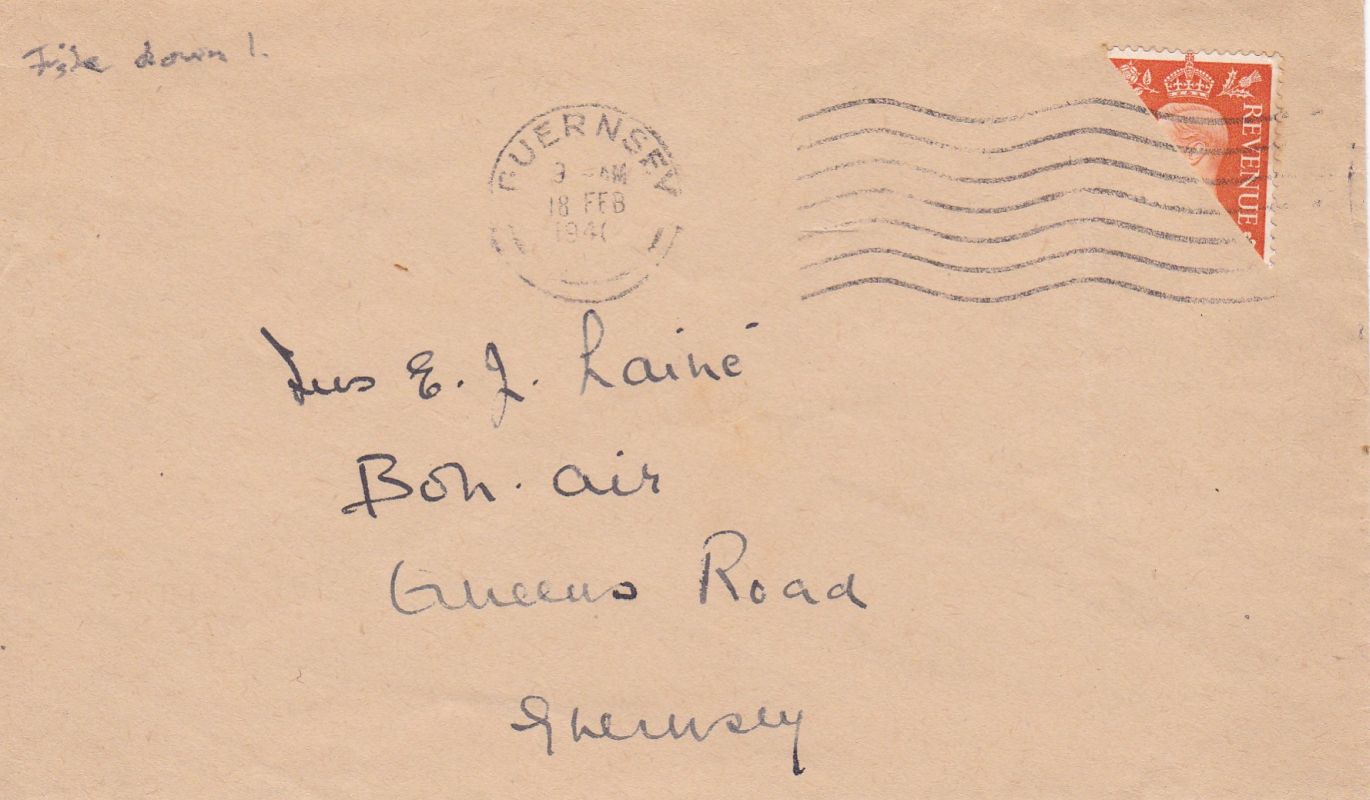 down !.
GUERNSEY
9 - AM
18 FEB
1941
REVENUE
Mrs E. J. Lainé
Bon. air
Queens Road
Guernsey